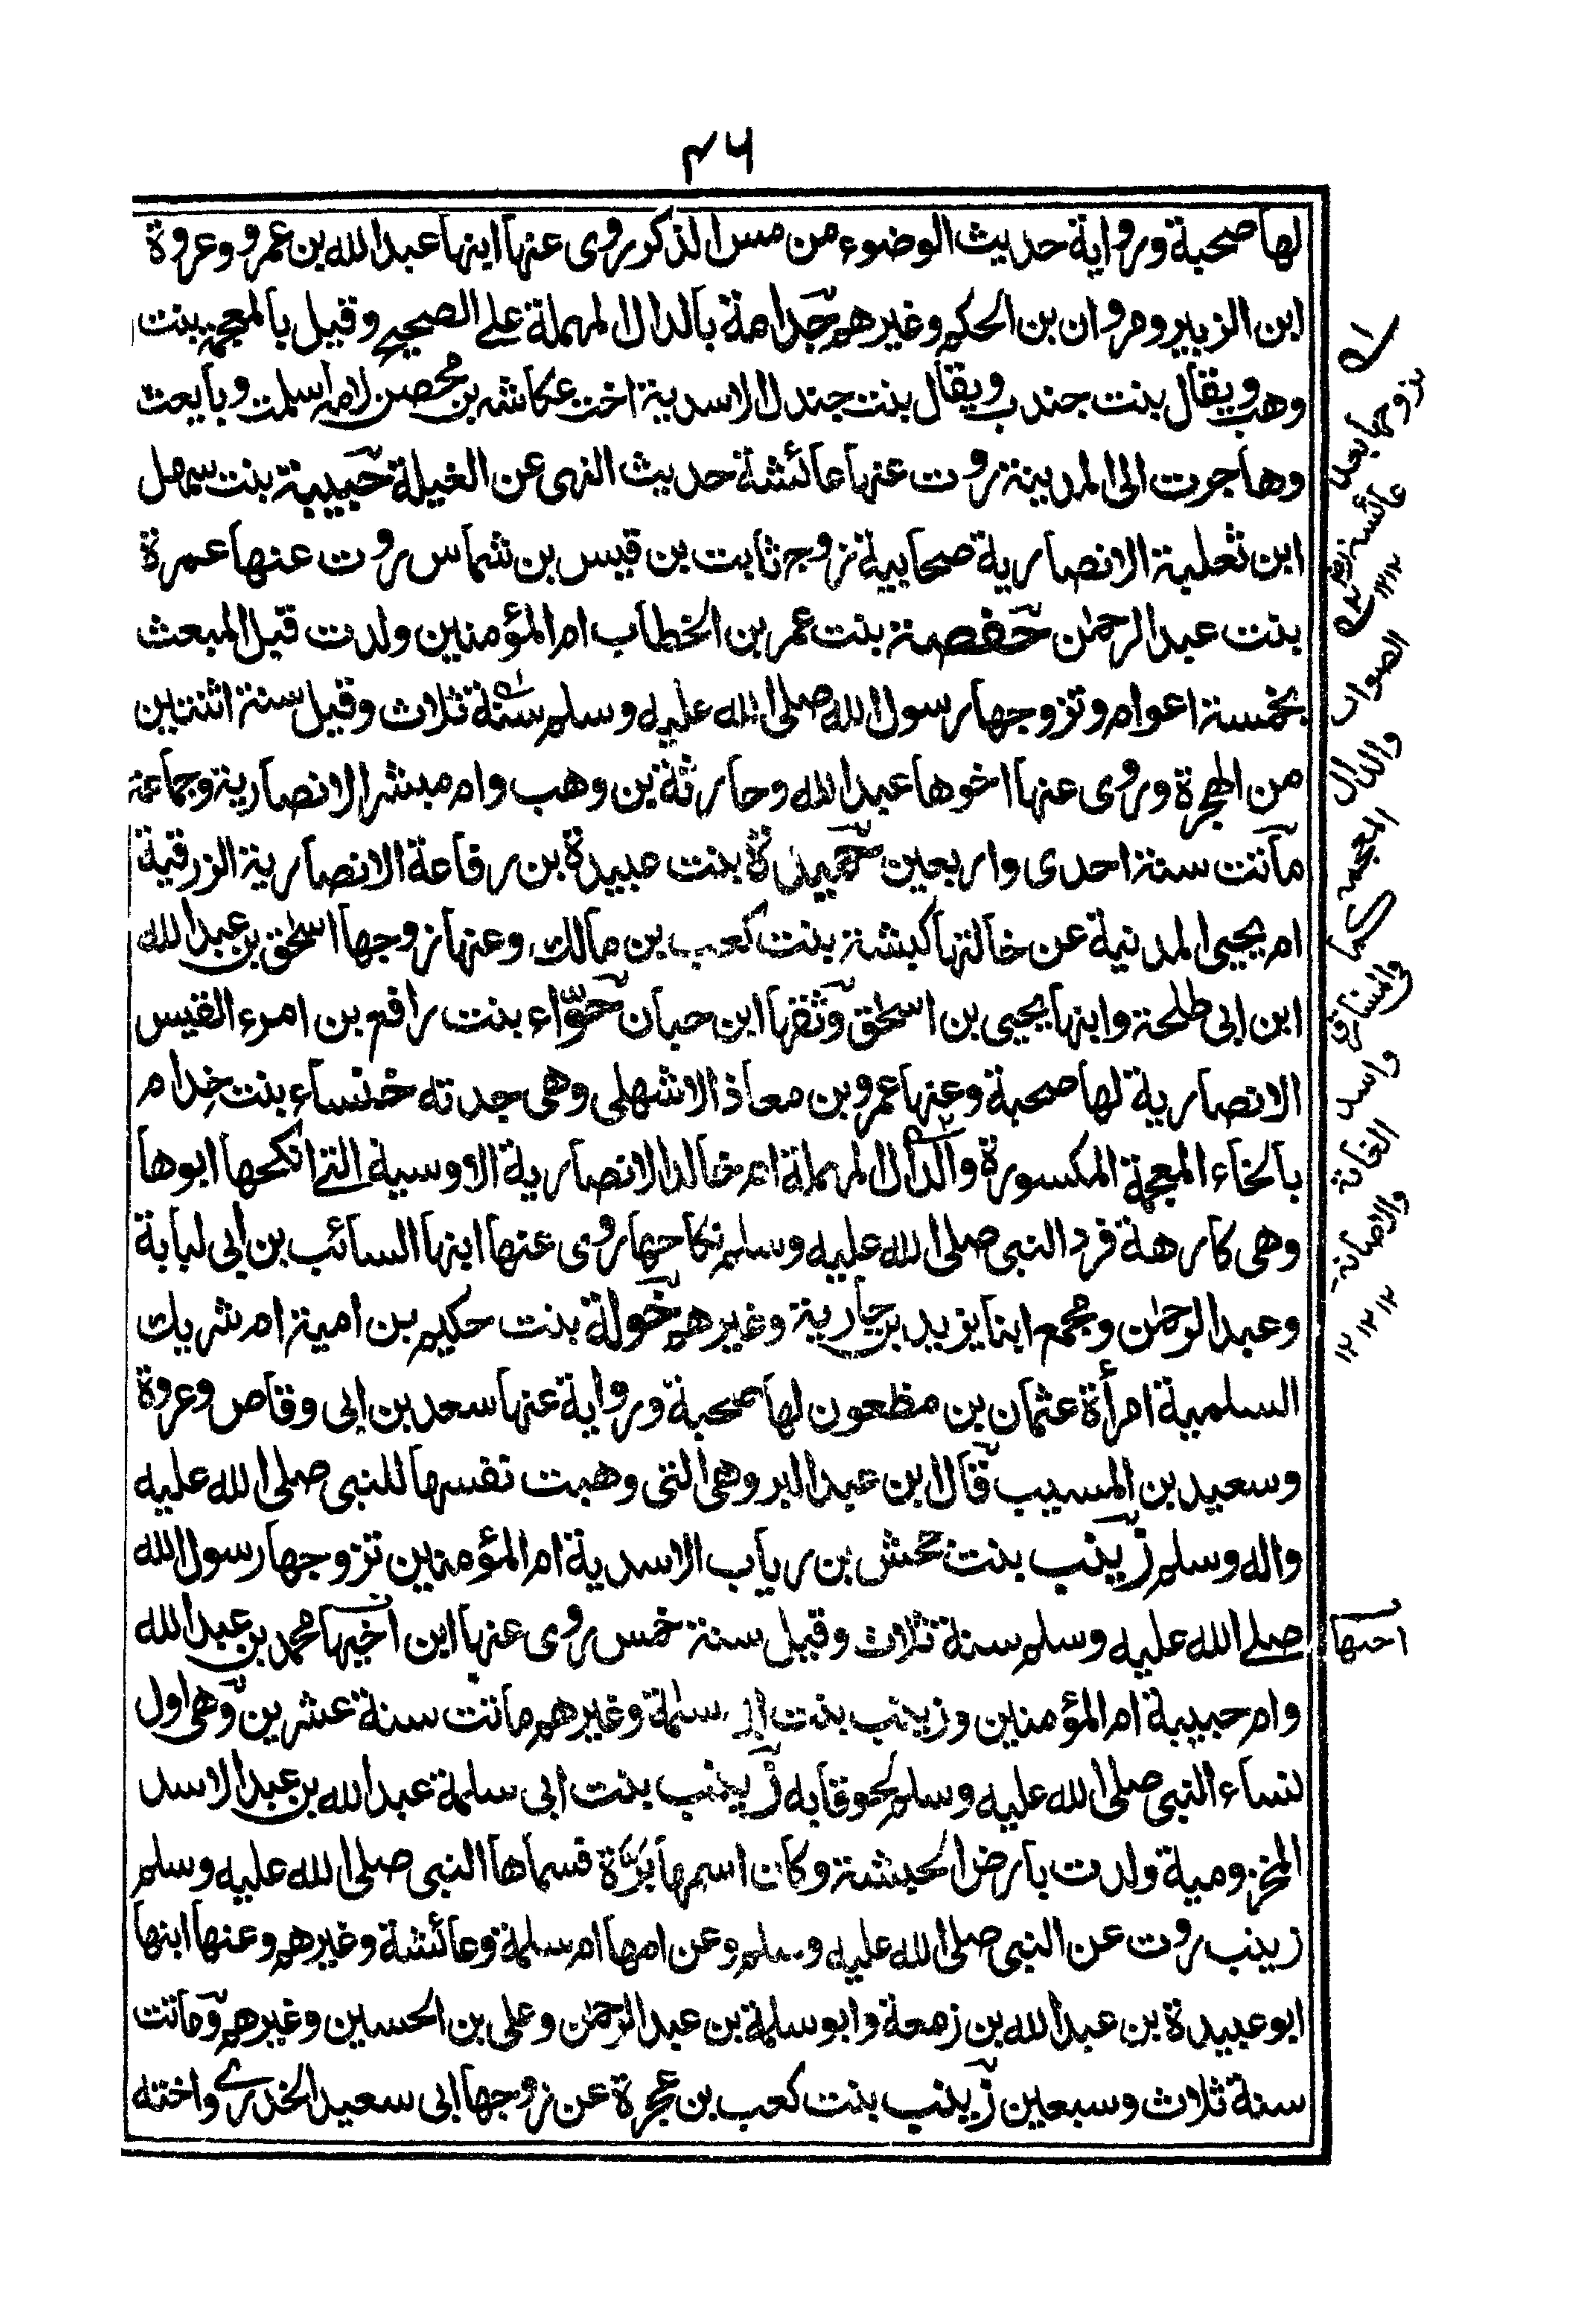 ٤٦
لها صحبة ورواية حديث الوضوء من مس الذكر روى عنها ابنها عبد الله بن عمرو وعروة
ابن الزبير ومروان بن الحكم وغيرهم جدامة بالدال المهملة على الصحيح وقيل بالمعجمة بنت
وهب ويقال بنت جندب ويقال بنت جندل الاسدية اخت عكاشه بن محصن لامه اسلمت وبايعت
وهاجرت الى المدينة روت عنها عائشة حديث النهى عن الغيلة حبيبة بنت سهل
ابن ثعلبة الانصارية صحابية زوج ثابت بن قيس بن شماس روت عنها عمرة
بنت عبد الرحمن حفصة بنت عمر بن الخطاب ام المؤمنين ولدت قبل المبعث
بخمسة اعوام وتزوجها رسول الله صلى الله عليه وسلم سنة ثلاث وقيل سنة اثنتين
من الهجرة وروى عنها اخوها عبد الله وحارثة بن وهب وام مبشر الانصارية وجماعة
ماتت سنة احدى واربعين حميدة بنت عبيدة بن رفاعة الانصارية الزرقية
ام يحيى المدنية عن خالتها كبشة بنت كعب بن مالك وعنها زوجها اسحق بن عبد الله
ابن ابى طلحة وابنها يحيى بن اسحق وثقها ابن حبان حوّاء بنت رافع بن امرء القيس
الانصارية لها صحبة وعنها عمرو بن معاذ الاشهلى وهى جدته خنساء بنت خِدام
بالخاء المعجمة المكسورة والدال المهملة ام خالد الانصارية الاوسية التے انكحها ابوها
وهى كارهة فرد النبى صلى الله عليه وسلم نكاحها روى عنها ابنها السائب بن ابى لبابة
وعبد الرحمن ومجمع ابنا يزيد بن جارية وغيرهم خولة بنت حكيم بن امية ام شريك
السلمية امرأة عثمان بن مظعون لها صحبة ورواية عنها سعد بن ابى وقاص وعروة
وسعيد بن المسيب قال ابن عبد البر وهى التى وهبت نفسها للنبى صلى الله عليه
واله وسلم زينب بنت جحش بن رياب الاسدية ام المؤمنين تزوجها رسول الله
صلے الله عليه وسلم سنة ثلاث وقيل سنة خمس روى عنها ابن اخيها محمد بن عبد الله
وام حبيبة ام المؤمنين وزينب بنت ابى سلمة وغيرهم ماتت سنة عشرين وهى اول
نساء النبى صلى الله عليه وسلم لحوقا به زينب بنت ابى سلمة عبد الله بن عبد الاسد
المخزومية ولدت بارض الحبشة وكان اسمها برّة فسماها النبى صلى الله عليه وسلم
زينب روت عن النبى صلى الله عليه وسلم وعن امها ام سلمة وعائشة وغيرهم وعنها ابنها
ابو عبيدة بن عبد الله بن زمعة وابو سلمة بن عبد الرحمن وعلى بن الحسين وغيرهم وماتت
سنة ثلاث وسبعين زينب بنت كعب بن عجرة عن زوجها ابى سعيد الخدرے واخته
تزوجها بعد
عائشة
١٢ ١٢
الصواب
والذال
المعجمة
كما
واسد
الغابة
والاصابة
١٢ ١٢ ١٢